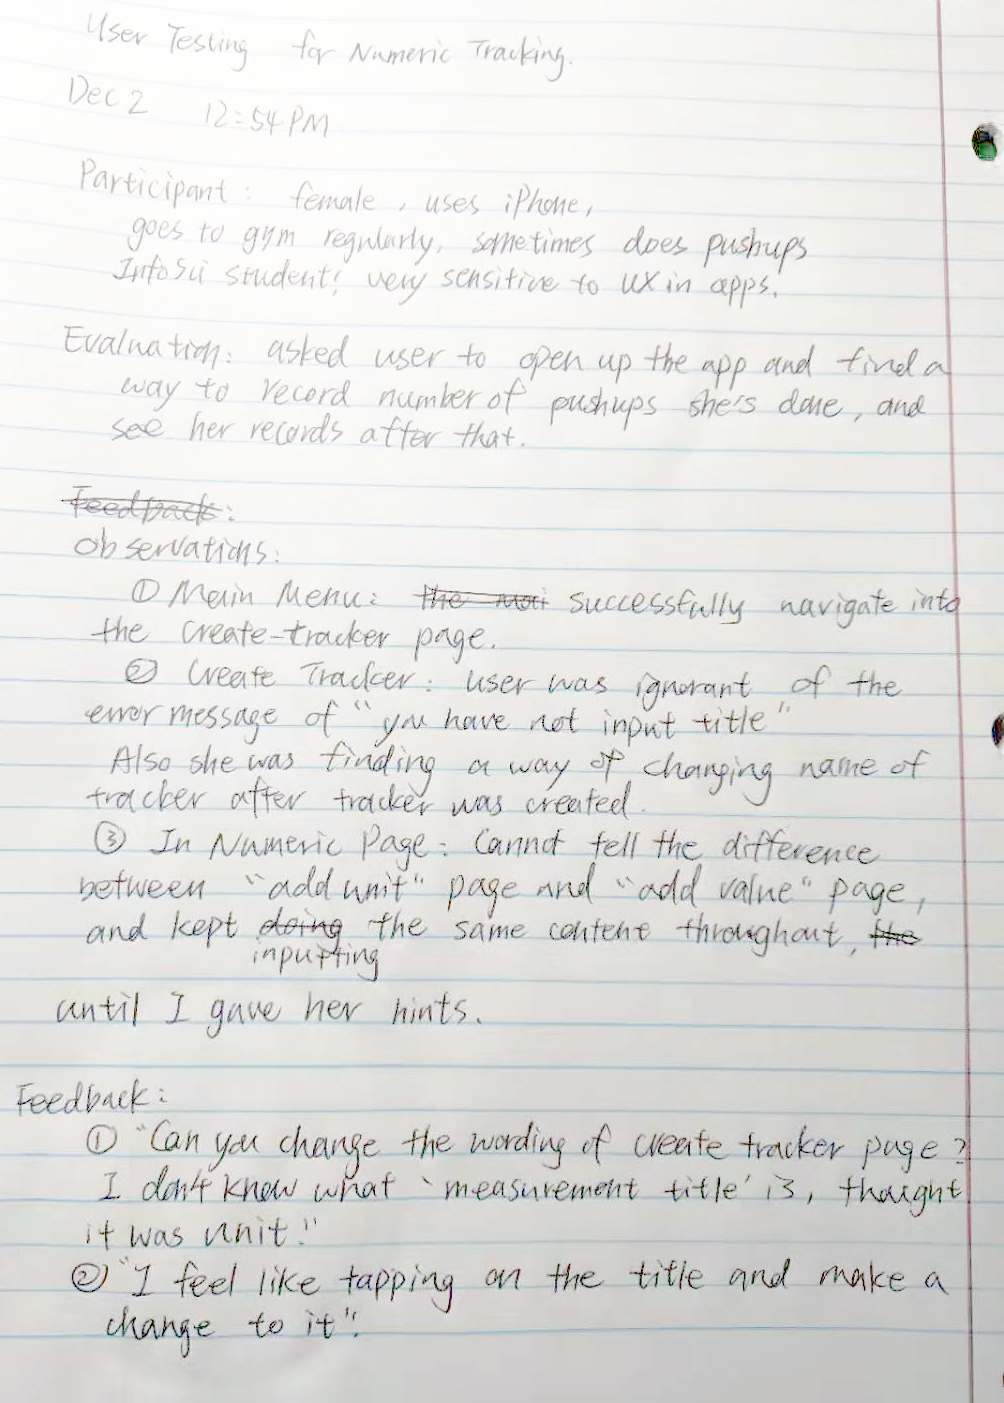 User Testing for Numeric Tracking.
Dec 2 12:54 PM
Participant: female, uses iPhone,
goes to gym regularly, sometimes does pushups
InfoSci student; very sensitive to UX in apps.
Evaluation: asked user to open up the app and find a
way to record number of pushups she's done, and
see her records after that.
Feedback:
Observations:
① Main Menu: the mai successfully navigate into
the create-tracker page.
② Create Tracker: user was ignorant of the
error message of "you have not input title"
Also she was finding a way of changing name of
tracker after tracker was created.
③ In Numeric Page: Cannot tell the difference
between "add unit" page and "add value" page,
and kept doing the same content throughout, the
inputting
until I gave her hints.
Feedback:
① "Can you change the wording of create tracker page?
I don't know what 'measurement title' is, thought
it was unit."
② "I feel like tapping on the title and make a
change to it".